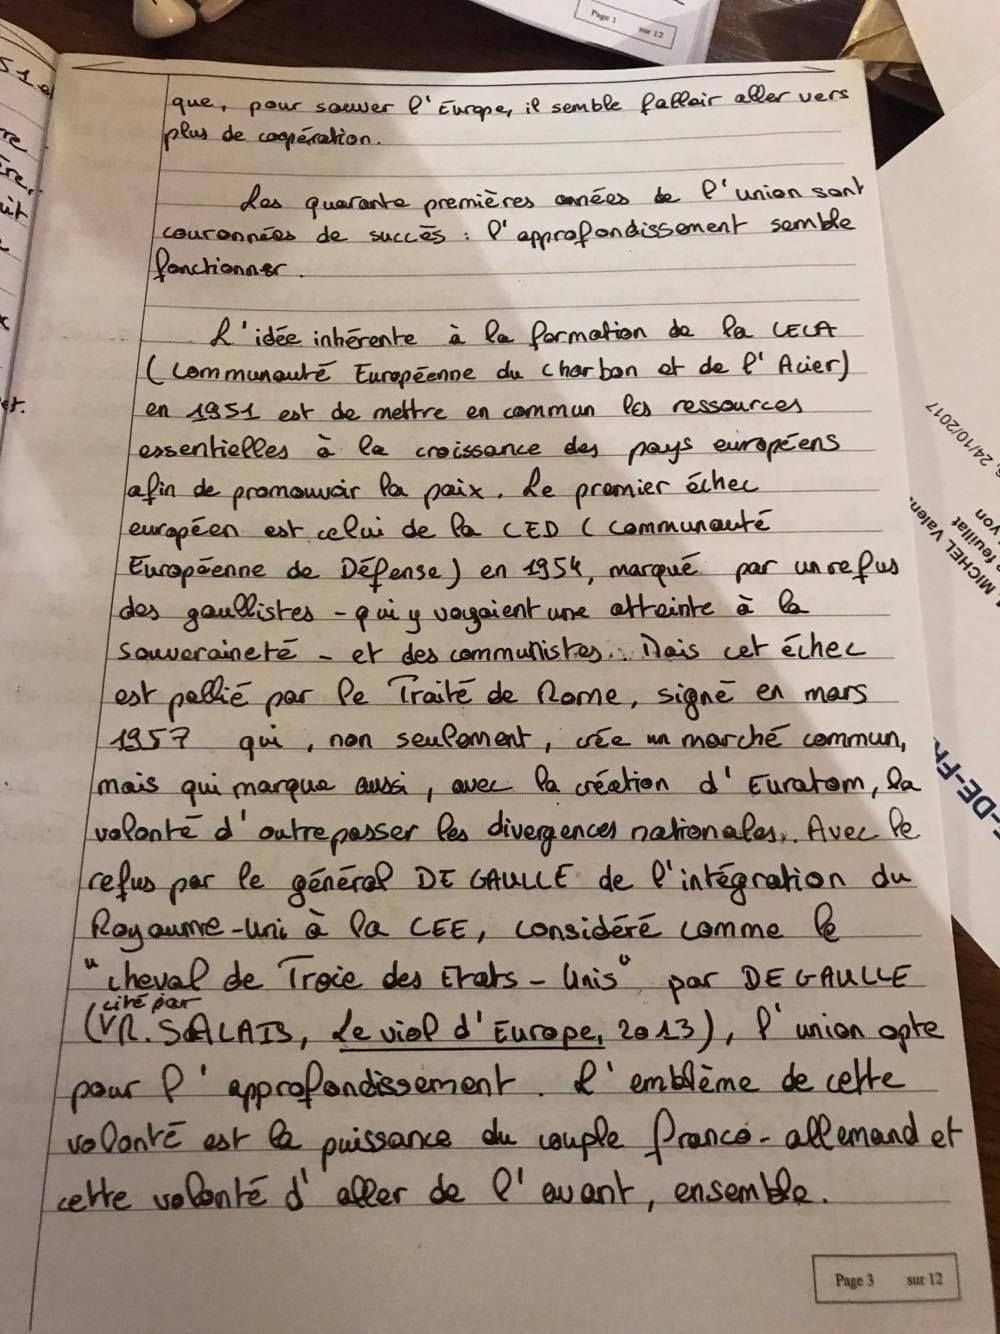 Page 1 sur 12
51 e
que, pour sauver l'Europe, il semble falloir aller vers
plus de coopération.
Les quarante premières années de l'union sont
couronnées de succès : l'approfondissement semble
fonctionner.
L'idée inhérente à la formation de la CECA
(Communauté Européenne du Charbon et de l'Acier)
en 1951 est de mettre en commun les ressources
essentielles à la croissance des pays européens
afin de promouvoir la paix. Le premier échec
européen est celui de la CED (Communauté
Européenne de Défense) en 1954, marqué par un refus
des gaullistes - qui y voyaient une atteinte à la
souveraineté - et des communistes. Mais cet échec
est pallié par le Traité de Rome, signé en mars
1957 qui, non seulement, crée un marché commun,
mais qui marque aussi, avec la création d'Euratom, la
volonté d'outrepasser les divergences nationales. Avec le
refus par le général DE GAULLE de l'intégration du
Royaume-Uni à la CEE, considéré comme le
"cheval de Troie des Etats-Unis" par DE GAULLE
(cité par R. SALAIS, Le viol d'Europe, 2013), l'union opte
pour l'approfondissement. L'emblème de cette
volonté est la puissance du couple franco-allemand et
cette volonté d'aller de l'avant, ensemble.
Page 3 sur 12
24/10/2017
MICHEL Valen
feuillat
yon
E-DE-FR